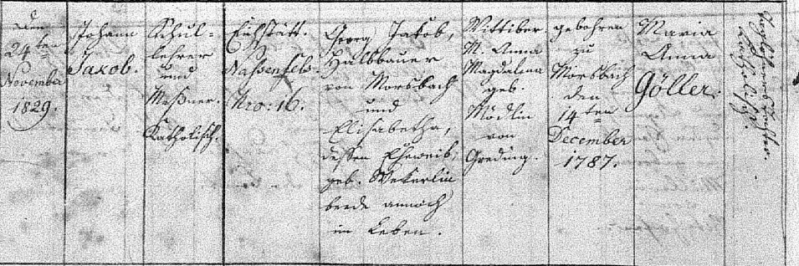 Den
24ten
November
1829.
Johann
Jakob.
Schul-
lehrer
und
Meßner.
Katholisch.
Eichstätt.
Nassenfels.
Nro: 16.
Georg Jakob,
Halbbauer
von Morsbach
und
Elisabetha,
dessen Eheweib,
geb. Weherlin
beede annoch
im Leben.
Wittiber.
M. Anna
Magdalena
geb.
Mödlin
von
Greding.
gebohren
zu
Morsbach
den
14ten
December
1787.
Maria
Anna
Göller.